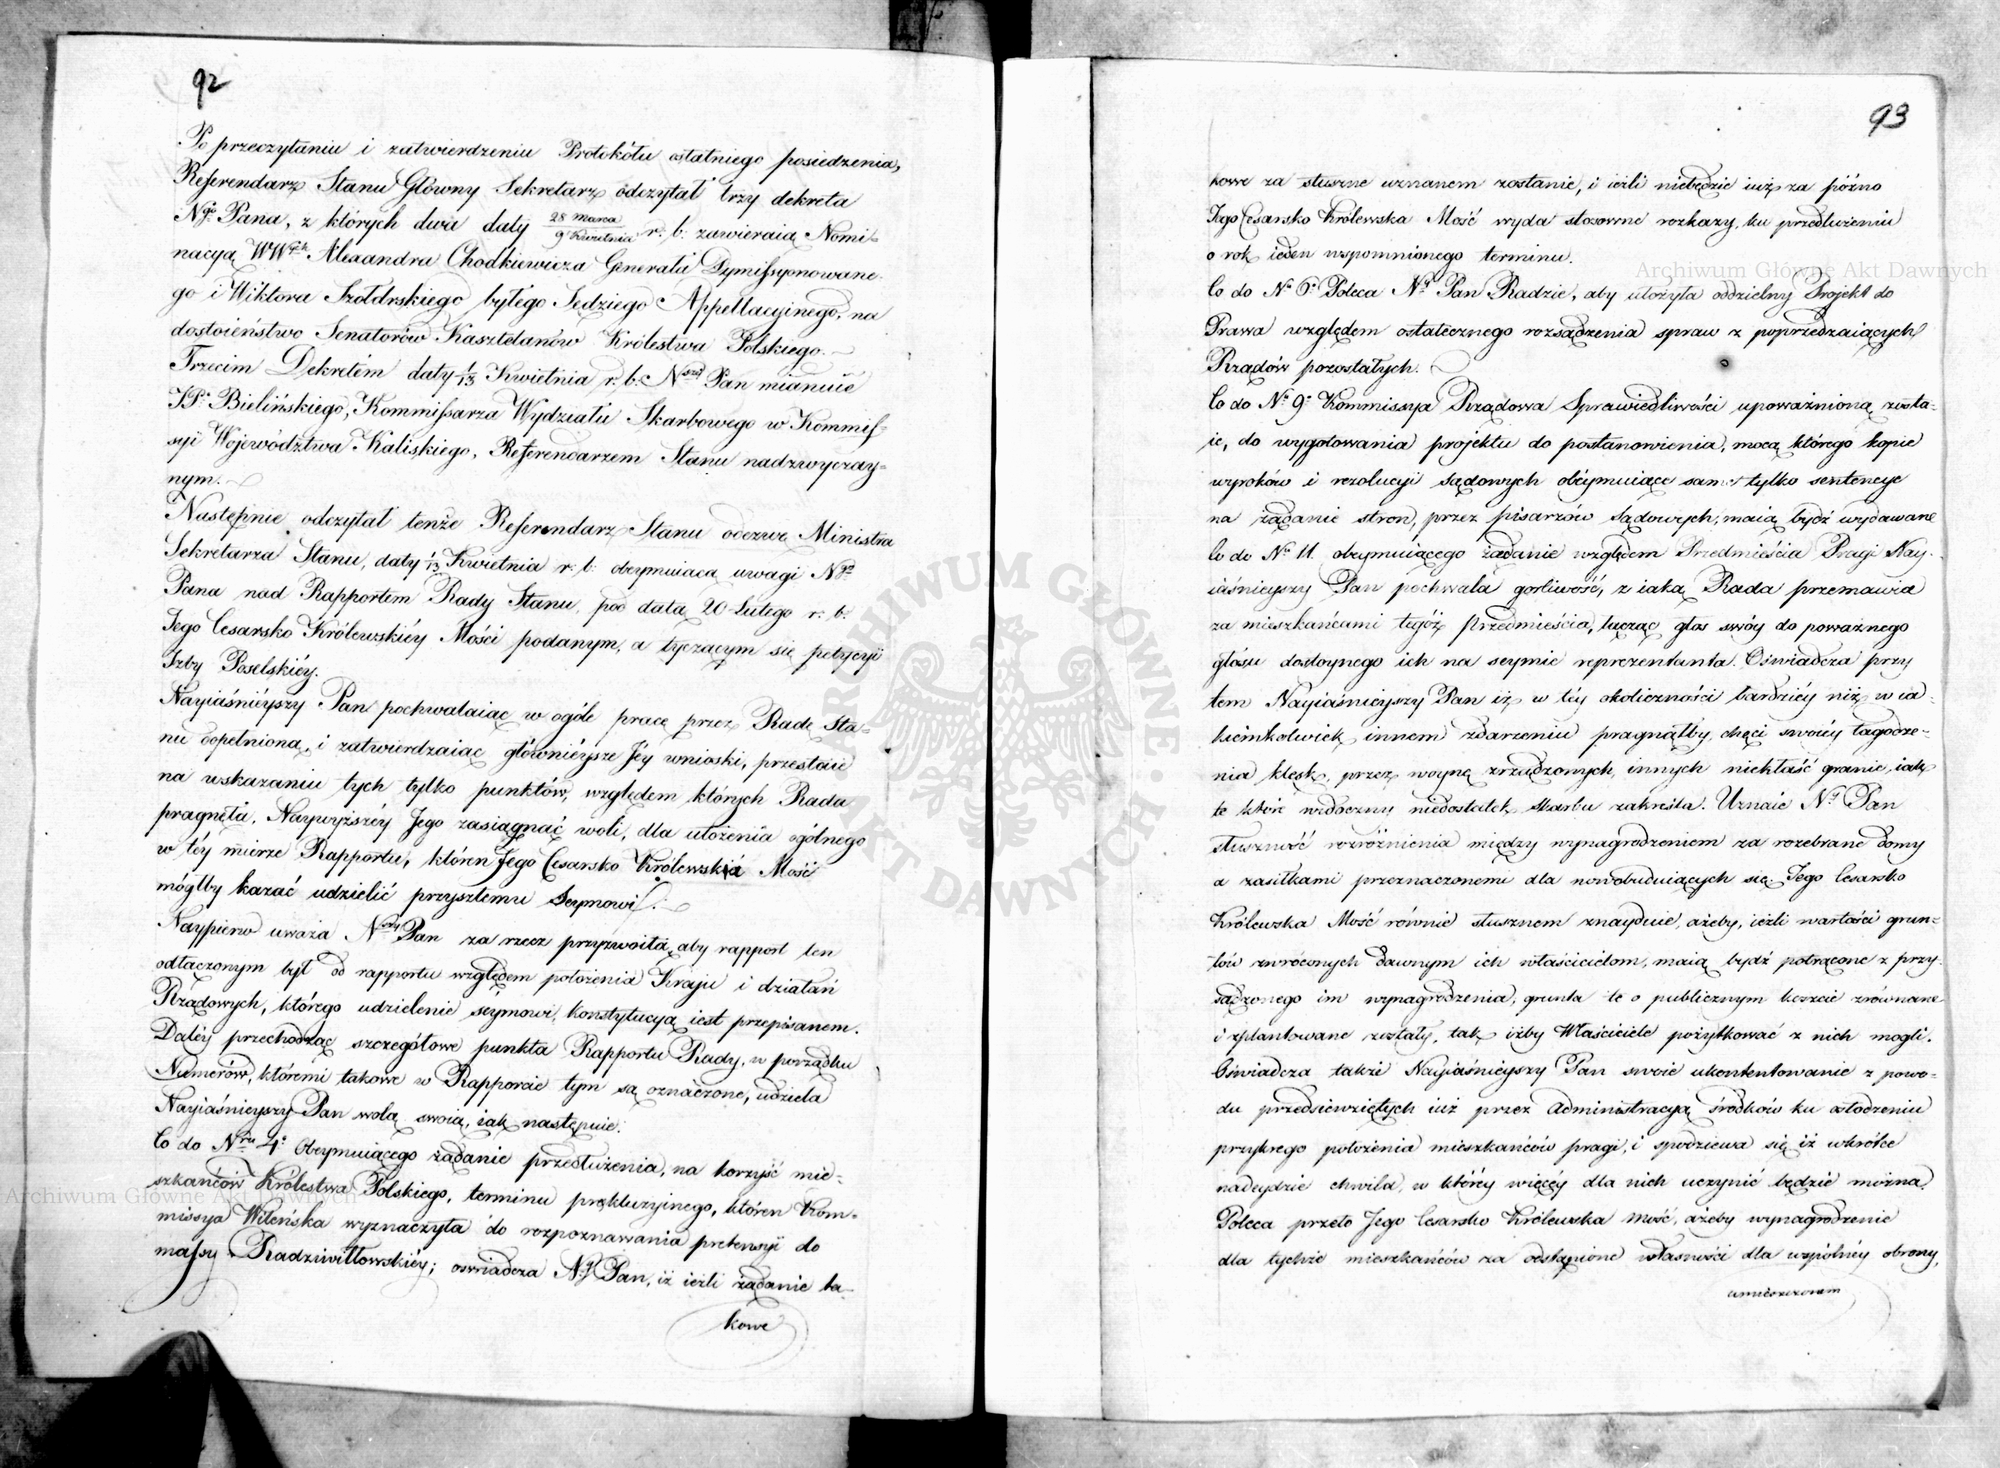 92
Po przeczytaniu i zatwierdzeniu Protokółu ostatniego posiedzenia,
Referendarz Stanu Główny Sekretarz odczytał trzy dekreta
Ngo Pana, z których dwa daty 28 Marca / 9 Kwietnia r. b. zawieraią Nomi-
nacyą WWch Alexandra Chodkiewicza Generała Dymissyonowane-
go i Wiktora Szołdrskiego byłego Sędziego Appellacyinego, na
dostoieństwo Senatorów Kasztelanów Królestwa Polskiego.
Trzecim Dekretem daty 1/13 Kwietnia r. b. Nszy Pan mianuie
JP. Bielińskiego, Kommissarza Wydziału Skarbowego w Kommis-
syi Województwa Kaliskiego, Referendarzem Stanu nadzwyczay-
nym.
Następnie odczytał tenże Referendarz Stanu odezwę Ministra
Sekretarza Stanu, daty 1/13 Kwietnia r. b. obeymuiącą uwagi Ngo
Pana nad Rapportem Rady Stanu, pod datą 20 Lutego r. b.
Jego Cesarsko Królewskiéy Mości podanym, a tyczącym się petycyi
Izby Poselskiéy.
Nayiaśnieyszy Pan pochwalaiąc w ogóle pracę przez Radę Sta-
nu dopełnioną, i zatwierdzaiąc główniéysze Jéy wnioski, przestaie
na wskazaniu tych tylko punktów, względem których Rada
pragnęła, Naywyższéy Jego zasiągnąć woli, dla ułożenia ogólnego
w téy mierze Rapportu, któren Jego Cesarsko Królewska Mość
mógłby kazać udzielić przyszłemu Seymowi.
Naypierw uważa Nszy Pan za rzecz przyzwoitą, aby rapport ten
odłączonym był od rapportu względem położenia Kraju i działań
Rządowych, którego udzielenie seymowi, konstytucyą iest przepisanem.
Daléy przechodząc szczegółowe punkta Rapportu Rady, w porządku
Numerów, któremi takowe w Rapporcie tym są oznaczone, udziela
Nayiaśnieyszy Pan wolą swoią, iak następuie:
Co do Nru 4o obeymuiącego żądanie przedłużenia, na korzyść mie-
szkańców Królestwa Polskiego, terminu prekluzyinego, któren Kom-
missya Wileńska wyznaczyła do rozpoznawania pretensyi do
massy Radziwiłłowskiéy; oświadcza Ny Pan, iż ieżli żądanie ta-
kowe
93
kowe za słuszne uznanem zostanie, i ieżli niebędzie iuż za późno
Jego Cesarsko Królewska Mość wyda stosowne rozkazy, ku przedłużeniu
o rok ieden wspomnionego terminu.
Co do No 6o Poleca Ny Pan Radzie, aby ułożyła oddzielny Projekt do
Prawa względem ostatecznego rozsądzenia spraw z poprzedzaiących
Rządów pozostałych.
Co do No 9o Kommissya Rządowa Sprawiedliwości upoważnioną zosta-
ie, do wygotowania projektu do postanowienia, mocą którego kopie
wyroków i rezolucyi sądowych obeymuiące same tylko sentencye
na żądanie stron, przez pisarzów sądowych, maią bydź wydawane
Co do No 11. obeymuiącego żądanie względem Przedmieścia Pragi Nay-
iaśnieyszy Pan pochwala gorliwość, z iaką Rada przemawia
za mieszkańcami tegóż Przedmieścia, łącząc głos swóy do poważnego
głosu dostoynego ich na seymie reprezentanta. Oświadcza przy
tem Nayiaśnieyszy Pan iż w téy okoliczności bardziéy niż w ia-
kiémkolwiek innem zdarzeniu pragnąłby, chęci swoiéy łagodze-
nia klęsk, przez woynę zrządzonych, innych niekłaść granic, iak
te które widoczny niedostatek skarbu zakreśla. Uznaie Ny Pan
słuszność rozróżnienia między wynagrodzeniem za rozebrane domy
a zasiłkami przeznaczonemi dla nowobuduiących się. Jego Cesarsko
Królewska Mość równie słusznem znayduie, ażeby, ieżli wartości grun-
tów zwróconych dawnym ich właścicielom, maią bydź potrącone z przy-
sądzonego im wynagrodzenia, grunta te o publicznym koszcie zrównane
i splantowane zostały, tak iżby Właściciele pożytkować z nich mogli.
Oświadcza także Nayiaśnieyszy Pan swoie ukontentowanie z powo-
du przedsięwziętych iuż przez Administracyą środków ku osłodzeniu
przykrego położenia mieszkańców pragi, i spodziewa się iż wkrótce
nadeydzie chwila, w któréy więcéy dla nich uczynić będzie można.
Poleca przeto Jego Cesarsko Królewska Mość, ażeby wynagrodzenie
dla tychże mieszkańców za odstąpione własności dla wspólnéy obrony,
umieszczonem
Archiwum Główne Akt Dawnych
Archiwum Główne Akt Dawnych
ARCHIWUM GŁÓWNE AKT DAWNYCH